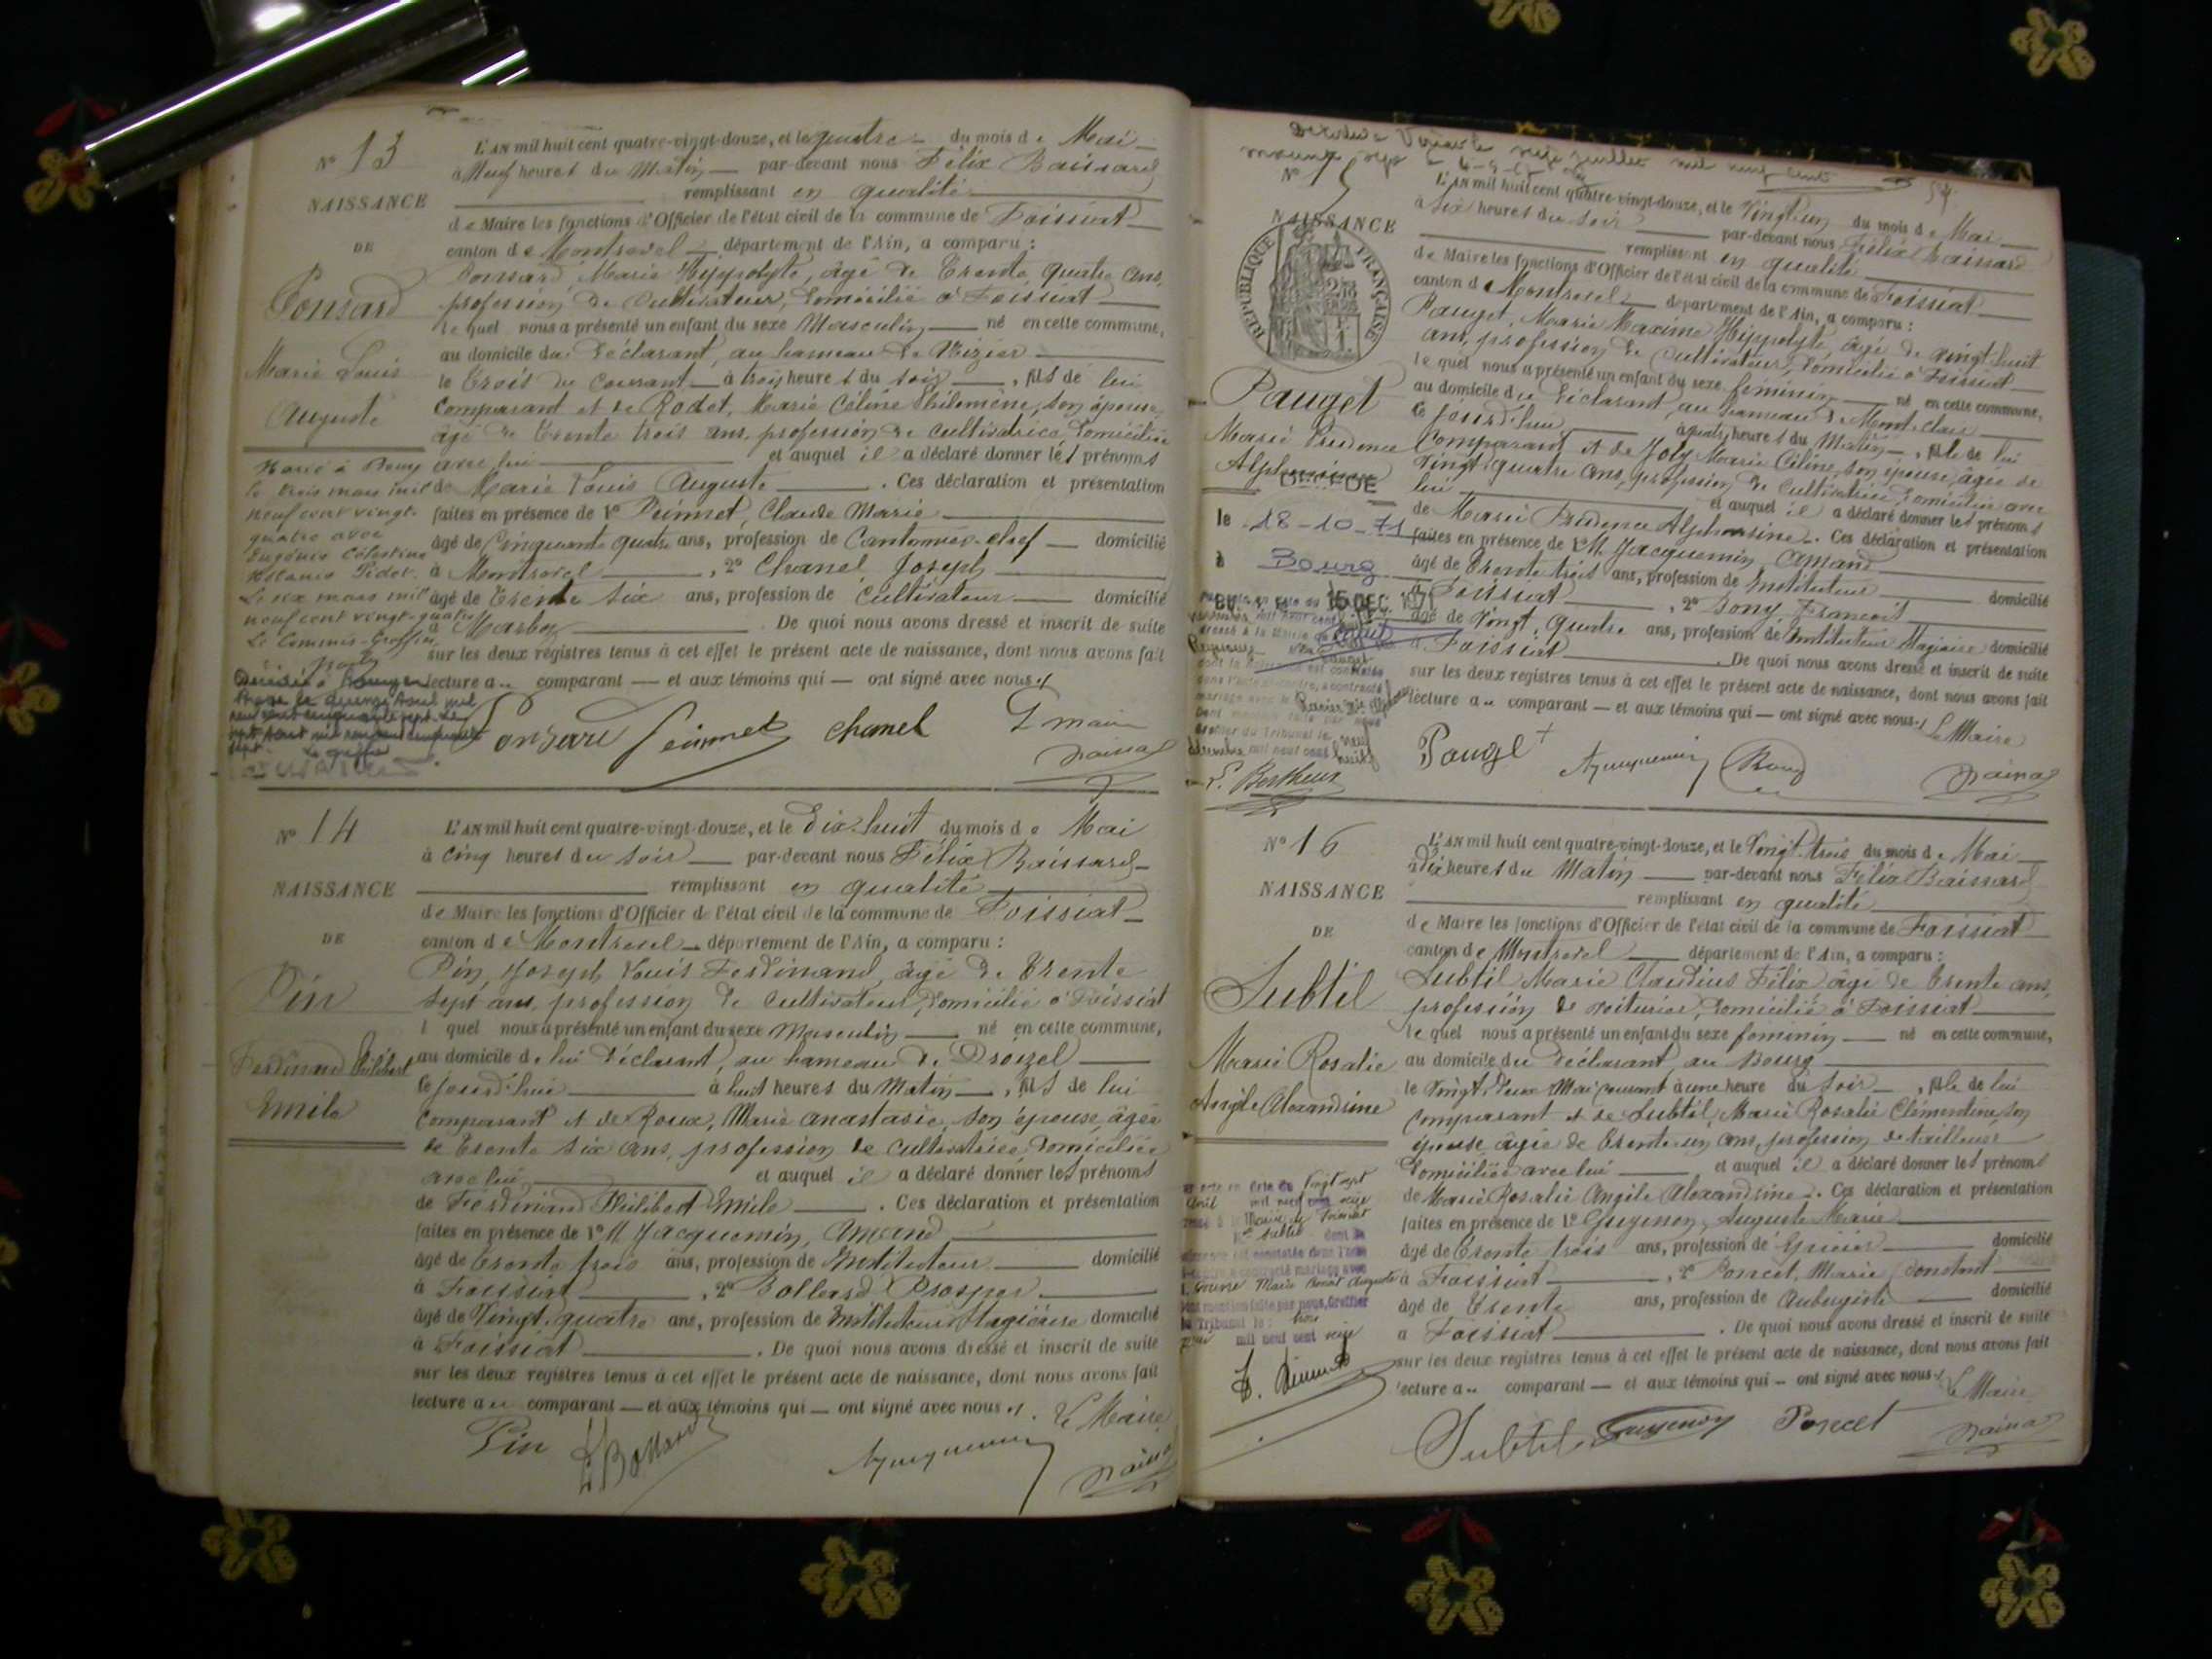 N° 13
NAISSANCE
DE
Ponsard
Marie Louis
Auguste
Marié à Beny
le trois mars mil
neuf cent vingt
quatre avec
Eugénie Célestine
Mélanie Pidet.
Le six mars mil
neuf cent vingt-quatre
Le Commis-Greffier
L'AN mil huit cent quatre-vingt-douze, et le quatre du mois de Mai
à Neuf heures du Matin par-devant nous Félix Baissard
remplissant en qualité
de Maire les fonctions d'Officier de l'état civil de la commune de Foissiat
canton de Montrevel département de l'Ain, a comparu :
Ponsard, Marie Hyppolyte, âgé de trente quatre ans,
profession de Cultivateur, domicilié à Foissiat
lequel nous a présenté un enfant du sexe Masculin né en cette commune,
au domicile du déclarant, au hameau de Vézier
le trois du courant à trois heures du soir, fils de lui
Comparant et de Rodet, Marie Céline Philomène, son épouse,
âgé de trente trois ans, profession de cultivatrice, domiciliée
avec lui et auquel il a déclaré donner les prénoms
de Marie Louis Auguste. Ces déclaration et présentation
faites en présence de 1° Peinnet, Claude Marie
âgé de Cinquante quatre ans, profession de Cantonnier-chef domicilié
à Montrevel, 2° Chanel Joseph
âgé de trente six ans, profession de Cultivateur domicilié
à Marboz. De quoi nous avons dressé et inscrit de suite
sur les deux registres tenus à cet effet le présent acte de naissance, dont nous avons fait
lecture au comparant et aux témoins qui ont signé avec nous.
Ponsard Peinnet Chanel
N° 14
NAISSANCE
DE
Pin
Ferdinand Philibert
Emile
L'AN mil huit cent quatre-vingt-douze, et le dix-huit du mois de Mai
à cinq heures du soir par-devant nous Félix Baissard
remplissant en qualité
de Maire les fonctions d'Officier de l'état civil de la commune de Foissiat
canton de Montrevel département de l'Ain, a comparu :
Pin, Joseph Louis Ferdinand, âgé de trente
sept ans, profession de Cultivateur, domicilié à Foissiat
lequel nous a présenté un enfant du sexe Masculin né en cette commune,
au domicile de lui déclarant, au hameau de Drouzel
ce jourd'hui à huit heures du Matin, fils de lui
Comparant et de Roux, Marie Anastasie, son épouse, âgée
de trente six ans, profession de cultivatrice, domiciliée
avec lui et auquel il a déclaré donner les prénoms
de Ferdinand Philibert Emile. Ces déclaration et présentation
faites en présence de 1° M Jacquemin, Amand
âgé de trente trois ans, profession de Instituteur domicilié
à Foissiat, 2° Bollard Prosper
âgé de Vingt quatre ans, profession de Instituteur Stagiaire domicilié
à Foissiat. De quoi nous avons dressé et inscrit de suite
sur les deux registres tenus à cet effet le présent acte de naissance, dont nous avons fait
lecture au comparant et aux témoins qui ont signé avec nous. Le Maire
Pin Bollard Jacquemin
N° 15
NAISSANCE
RÉPUBLIQUE FRANÇAISE
Pauget
Marie Prudence
Alphonsine
le 18-10-71
à Bourg
15 DEC.
E. Berthoux
L'AN mil huit cent quatre-vingt-douze, et le Vingt un du mois de Mai
à six heures du soir par-devant nous Félix Baissard
remplissant en qualité
de Maire les fonctions d'Officier de l'état civil de la commune de Foissiat
canton de Montrevel département de l'Ain, a comparu :
Pauget, Marie Maxime Hippolyte âgé de vingt huit
ans, profession de Cultivateur, domicilié à Foissiat
lequel nous a présenté un enfant du sexe féminin né en cette commune,
au domicile du déclarant, au hameau de Montclair
ce jourd'hui à quatre heures du Matin, fille de lui
Comparant et de Joly Marie Céline, son épouse, âgée de
Vingt quatre ans, profession de Cultivatrice, domiciliée avec
lui et auquel il a déclaré donner les prénoms
de Marie Prudence Alphonsine. Ces déclaration et présentation
faites en présence de 1° M. Jacquemin Amand
âgé de trente trois ans, profession de Instituteur domicilié
à Foissiat, 2° Bony, François
âgé de Vingt quatre ans, profession de Instituteur Stagiaire domicilié
à Foissiat. De quoi nous avons dressé et inscrit de suite
sur les deux registres tenus à cet effet le présent acte de naissance, dont nous avons fait
lecture au comparant et aux témoins qui ont signé avec nous. Le Maire
Pauget Jacquemin Bony
N° 16
NAISSANCE
DE
Subtil
Marie Rosalie
Angèle Alexandrine
L'AN mil huit cent quatre-vingt-douze, et le Vingt-trois du mois de Mai
à dix heures du Matin par-devant nous Félix Baissard
remplissant en qualité
de Maire les fonctions d'Officier de l'état civil de la commune de Foissiat
canton de Montrevel département de l'Ain, a comparu :
Subtil Marie Claudius Félix âgé de trente ans,
profession de voiturier, domicilié à Foissiat
lequel nous a présenté un enfant du sexe féminin né en cette commune,
au domicile du déclarant, au Bourg
le Vingt Deux Mai courant à une heure du soir, fille de lui
Comparant et de Subtil, Marie Rosalie Clémentine, son
épouse âgée de trente un ans, profession de tailleuse
domiciliée avec lui et auquel il a déclaré donner les prénoms
de Marie Rosalie Angèle Alexandrine. Ces déclaration et présentation
faites en présence de 1° Guigenon, Auguste Marie
âgé de trente trois ans, profession de Epicier domicilié
à Foissiat, 2° Poncet, Marie Constant
âgé de trente ans, profession de Aubergiste domicilié
à Foissiat. De quoi nous avons dressé et inscrit de suite
sur les deux registres tenus à cet effet le présent acte de naissance, dont nous avons fait
lecture au comparant et aux témoins qui ont signé avec nous. Le Maire
Subtil Guigenon Poncet